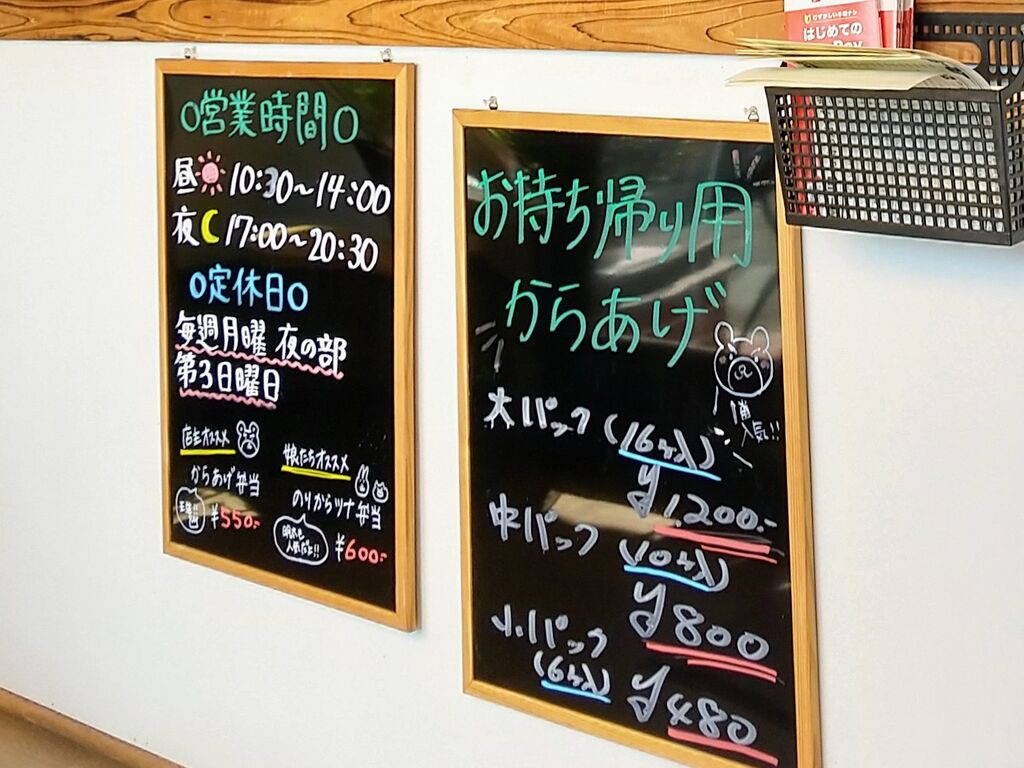 ○営業時間○
昼 10:30〜14:00
夜 17:00〜20:30
○定休日○
毎週月曜 夜の部
第3日曜日
店主オススメ
からあげ弁当
王道!!
¥550-
娘たちオススメ
のりからツナ弁当
明太も
人気だよ!!
¥600-
お持ち帰り用
からあげ
1番
人気!!
大パック (16ヶ入)
¥1200-
中パック (10ヶ入)
¥800
小パック
(6ヶ入) ¥480
はじめての